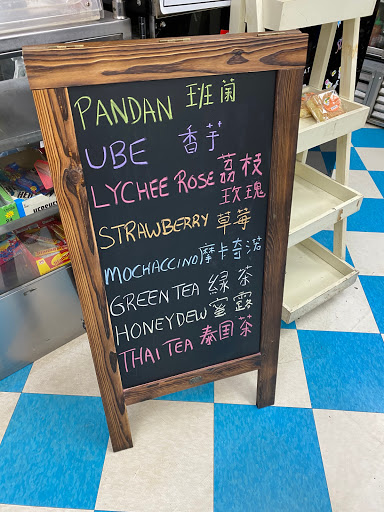 PANDAN 班蘭
UBE 香芋
LYCHEE ROSE 荔枝
玫瑰
STRAWBERRY 草莓
MOCHACCINO 摩卡奇诺
GREEN TEA 绿茶
HONEYDEW 蜜露
THAI TEA 泰国茶
HERSHEY'S